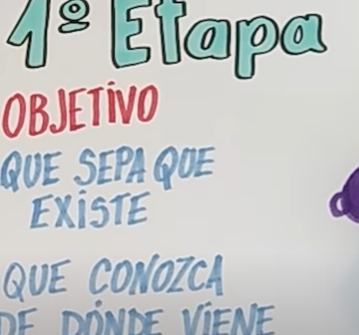 1º Etapa
OBJETIVO
QUE SEPA QUE
EXISTE
QUE CONOZCA
DE DÓNDE VIENE